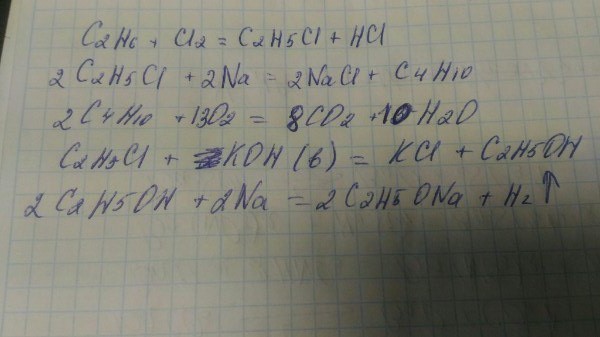 C2H6 + Cl2 = C2H5Cl + HCl
2 C2H5Cl + 2Na = 2NaCl + C4H10
2 C4H10 + 13O2 = 8CO2 + 10H2O
C2H5Cl + KOH (в) = KCl + C2H5OH
2 C2H5OH + 2Na = 2 C2H5ONa + H2↑